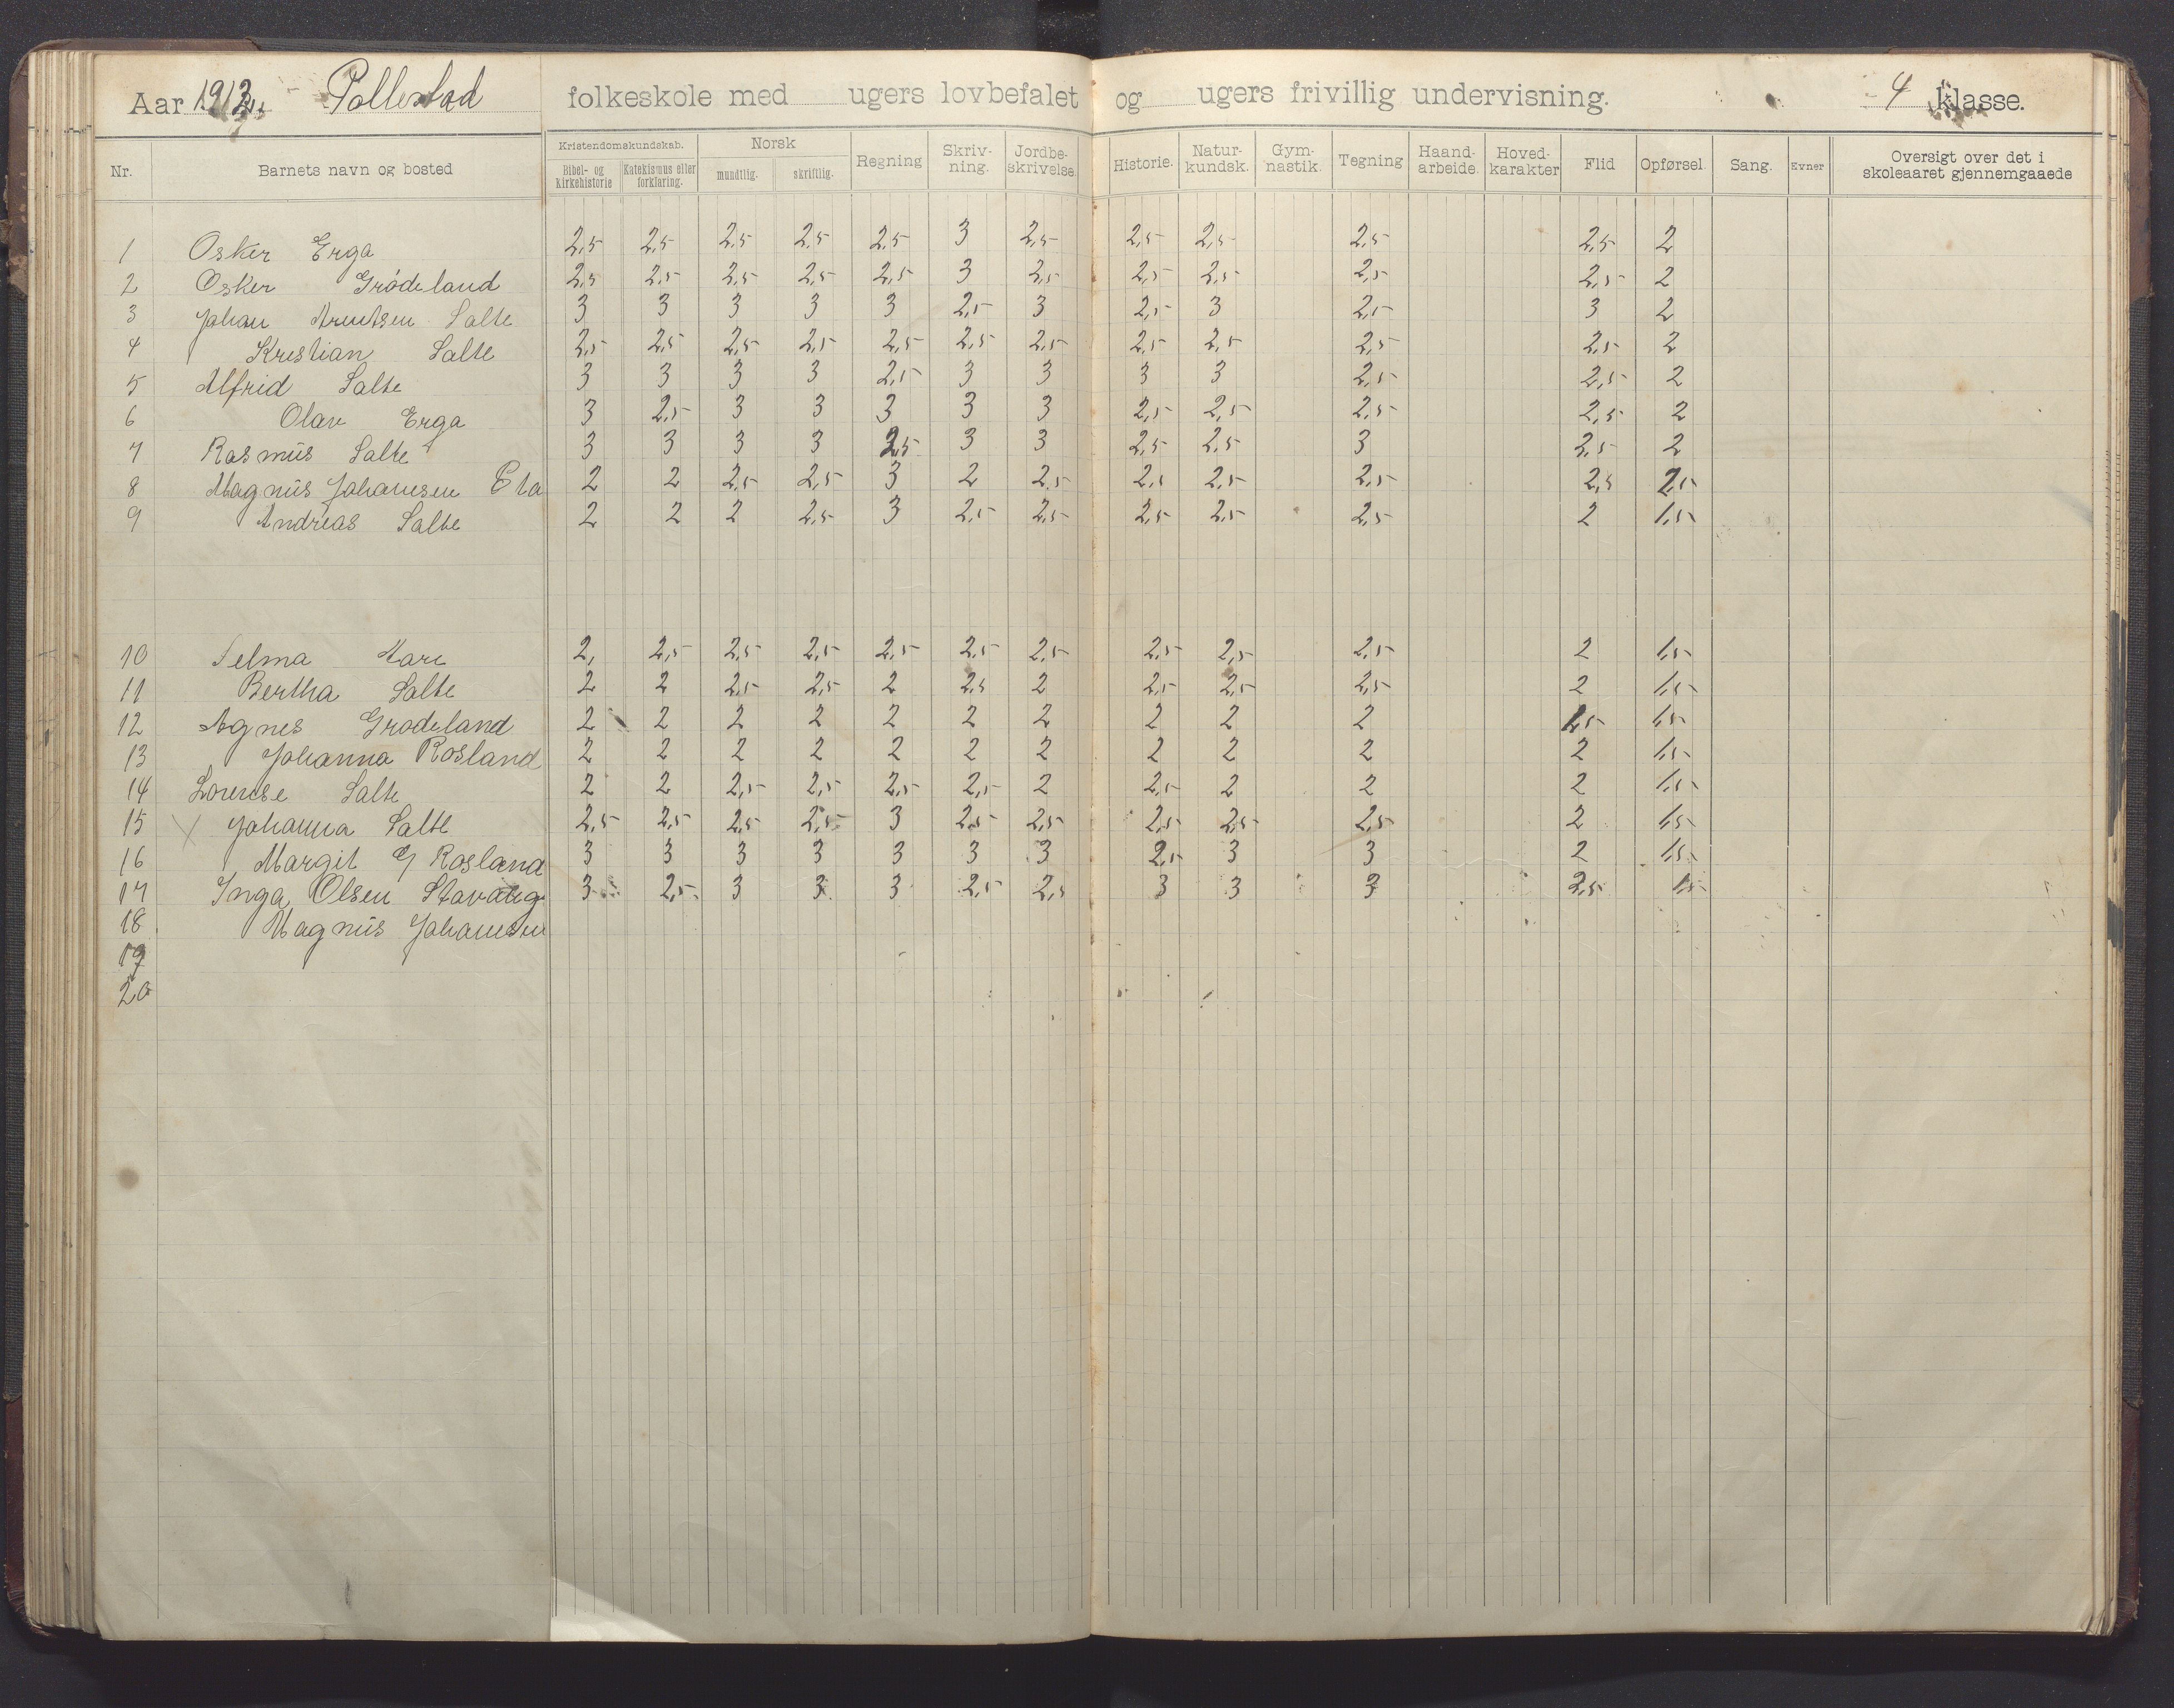 Aar 1913 Pollestad folkeskole med ugers lovbefalet og ugers frivillig undervisning. 4 klasse.
Nr. Barnets navn og bosted Kristendomskundskab. Bibel- og kirkehistorie Katekismus eller forklaring. Norsk mundtlig. skriftlig. Regning Skriv-ning. Jordbe-skrivelse. Historie. Natur-kundsk. Gym-nastik. Tegning Haand-arbeide. Hoved-karakter Flid Opførsel. Sang. Evner Oversigt over det i skoleaaret gjennemgaaede
1 Osker Erga 2,5 2,5 2,5 2,5 2,5 3 2,5 2,5 2,5 2,5 2,5 2
2 Osker Grødeland 2,5 2,5 2,5 2,5 2,5 3 2,5 2,5 2,5 2,5 2,5 2
3 Johan Arntsen Salte 3 3 3 3 3 2,5 3 2,5 3 2,5 3 2
4 Kristian Salte 2,5 2,5 2,5 2,5 2,5 2,5 2,5 2,5 2,5 2,5 2,5 2
5 Alfrid Salte 3 3 3 3 2,5 3 3 3 3 2,5 2,5 2
6 Olav Erga 3 2,5 3 3 3 3 3 2,5 2,5 2,5 2,5 2
7 Rasmus Salte 3 3 3 3 2,5 3 3 2,5 2,5 3 2,5 2
8 Magnus Johansen 2 2 2,5 2,5 3 2 2,5 2,5 2,5 2,5 2,5 2,5
9 Andreas Salte 2 2 2 2,5 3 2,5 2,5 2,5 2,5 2,5 2 1,5
10 Selma 2, 2,5 2,5 2,5 2,5 2,5 2,5 2,5 2,5 2,5 2 1,5
11 Bertha Salte 2 2 2,5 2,5 2 2,5 2 2,5 2,5 2,5 2 1,5
12 Agnes Grødeland 2 2 2 2 2 2 2 2 2 2 1,5 1,5
13 Johanna Rosland 2 2 2 2 2 2 2 2 2 2 2 1,5
14 Lovense Salte 2 2 2,5 2,5 2,5 2,5 2 2,5 2 2 2 1,5
15 Johanna Salte 2,5 2,5 2,5 2,5 3 2,5 2,5 2,5 2,5 2,5 2 1,5
16 Margit G Rosland 3 3 3 3 3 3 3 2,5 3 3 2 1,5
17 Inga Olsen Stavang 3 2,5 3 3 3 2,5 2,5 3 3 3 2,5 1,5
18 Magnus Johansen
19
20